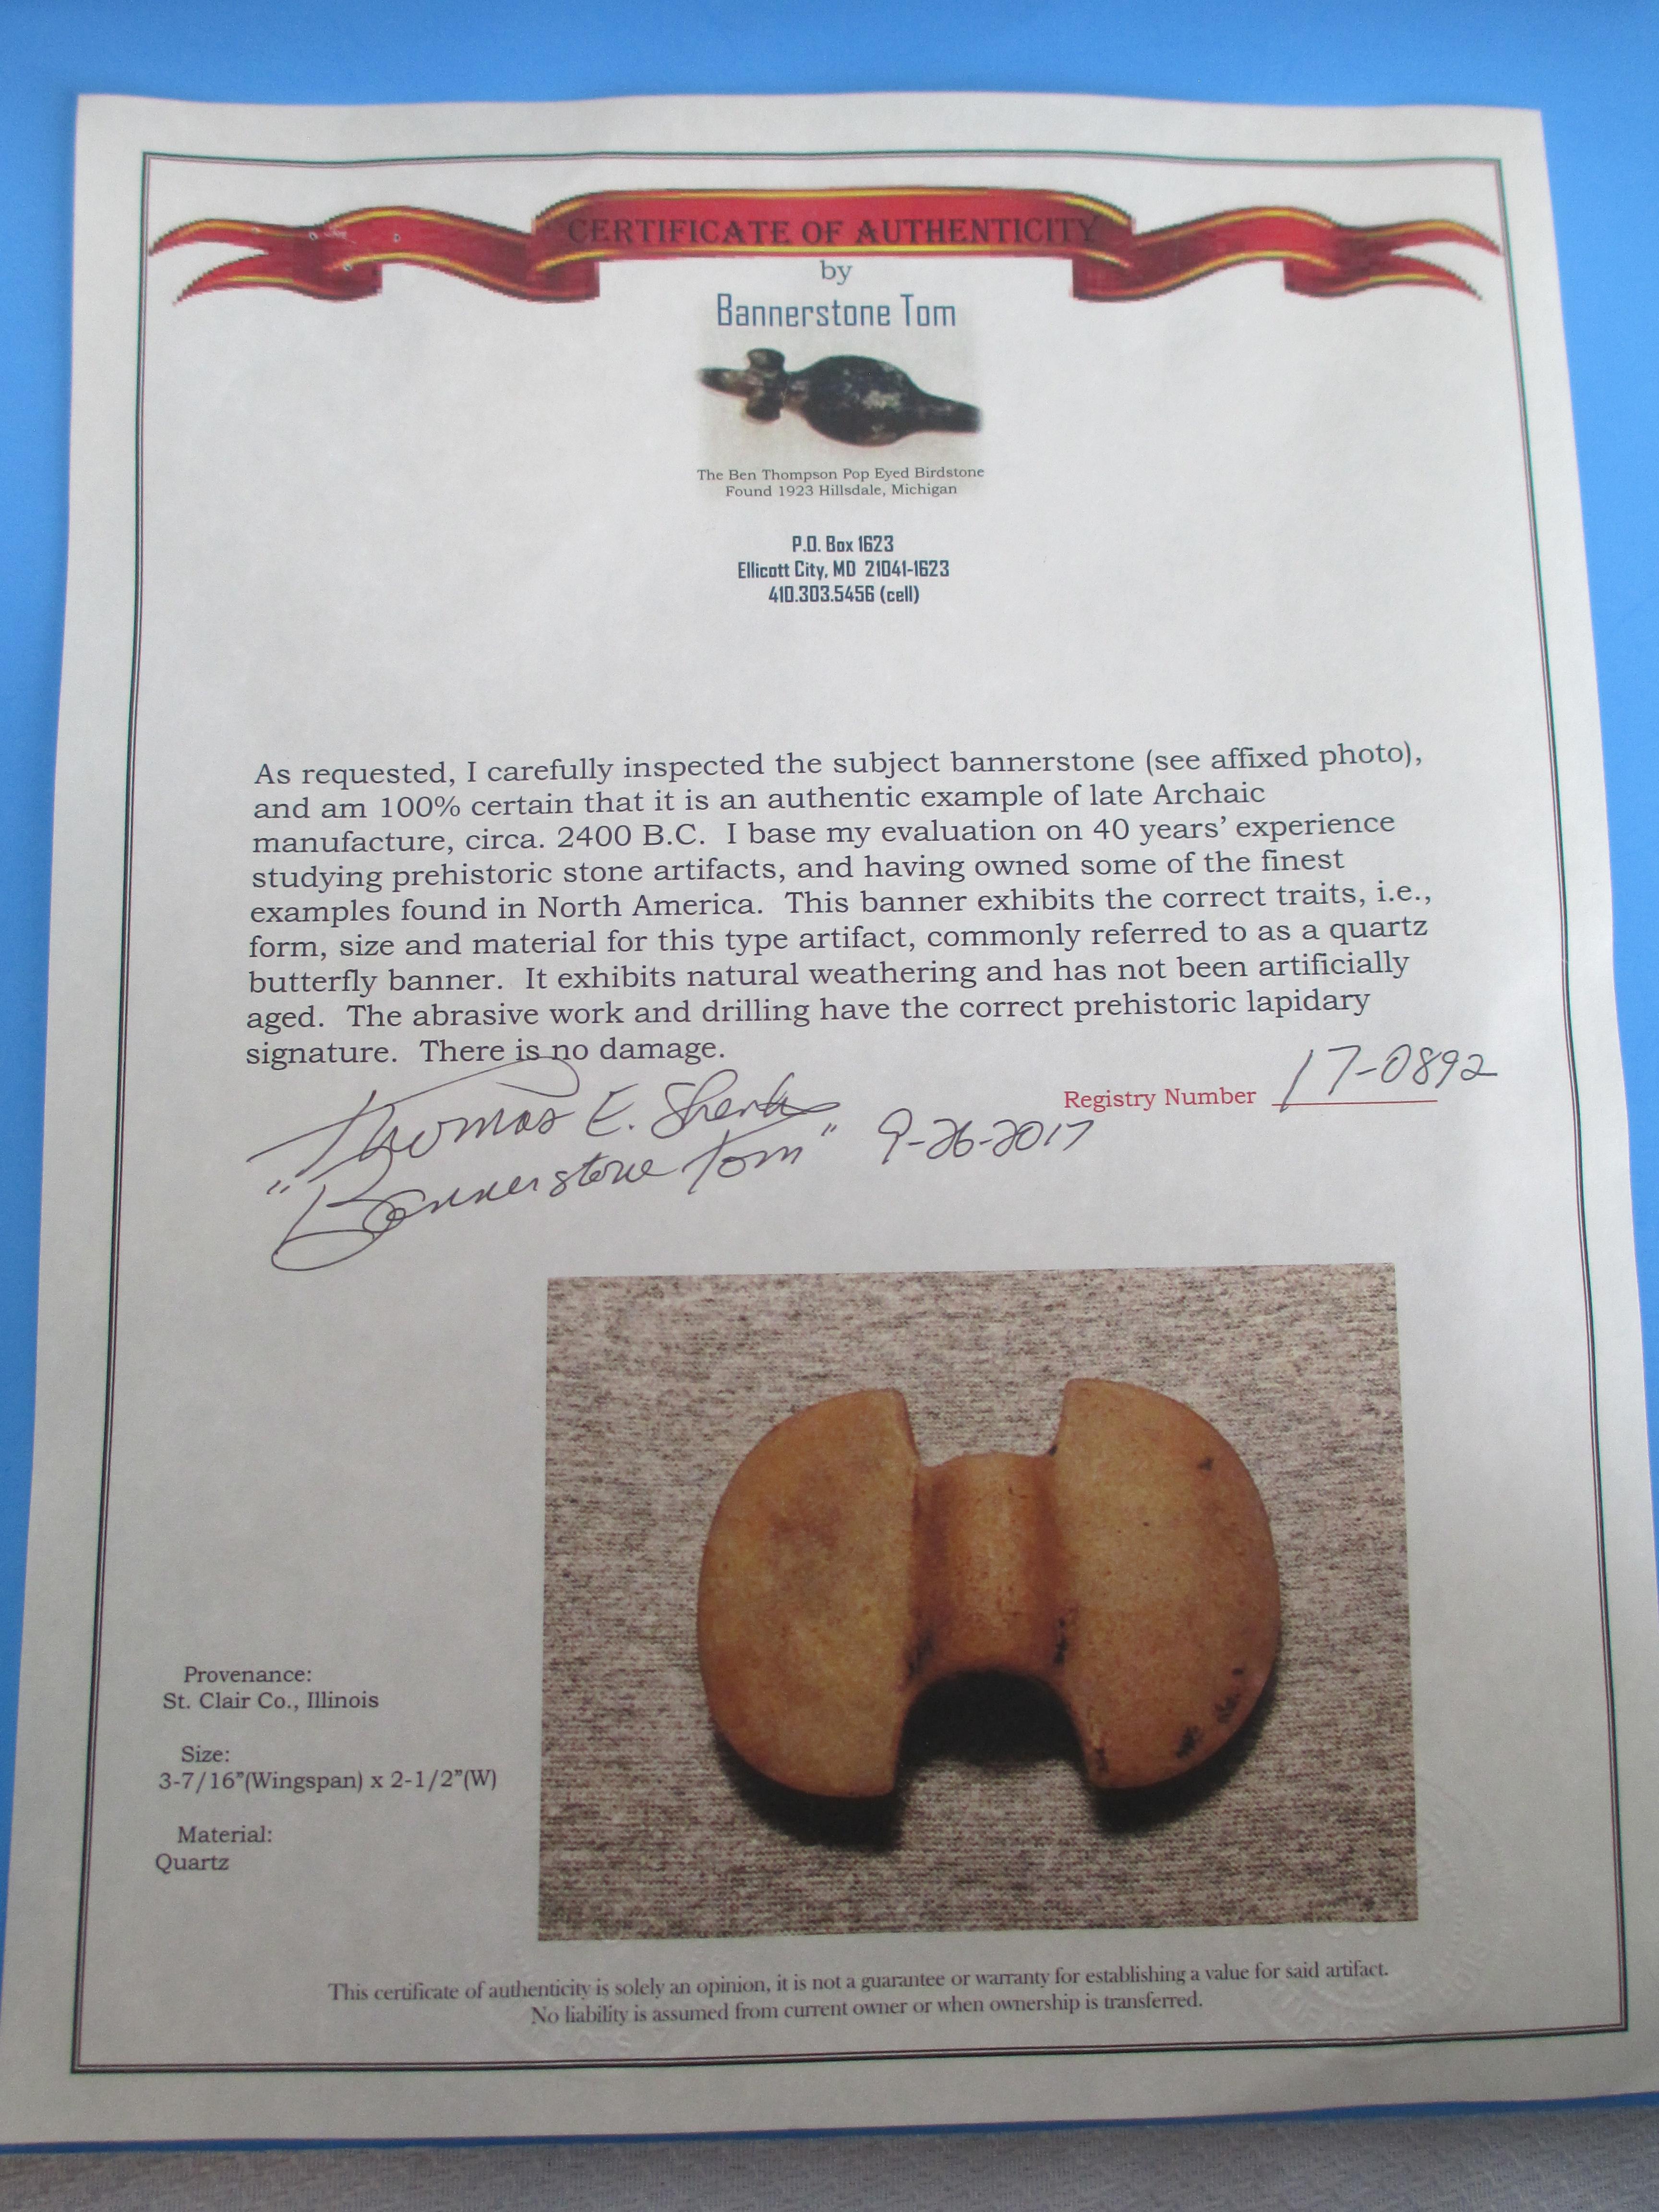 CERTIFICATE OF AUTHENTICITY
by
Bannerstone Tom
The Ben Thompson Pop Eyed Birdstone
Found 1923 Hillsdale, Michigan
P.O. Box 1623
Ellicott City, MD 21041-1623
410.303.5456 (cell)
As requested, I carefully inspected the subject bannerstone (see affixed photo),
and am 100% certain that it is an authentic example of late Archaic
manufacture, circa. 2400 B.C. I base my evaluation on 40 years' experience
studying prehistoric stone artifacts, and having owned some of the finest
examples found in North America. This banner exhibits the correct traits, i.e.,
form, size and material for this type artifact, commonly referred to as a quartz
butterfly banner. It exhibits natural weathering and has not been artificially
aged. The abrasive work and drilling have the correct prehistoric lapidary
signature. There is no damage.
Registry Number 17-0892
Thomas E.
"Bannerstone Tom" 9-26-2017
Provenance:
St. Clair Co., Illinois
Size:
3-7/16"(Wingspan) x 2-1/2"(W)
Material:
Quartz
This certificate of authenticity is solely an opinion, it is not a guarantee or warranty for establishing a value for said artifact.
No liability is assumed from current owner or when ownership is transferred.